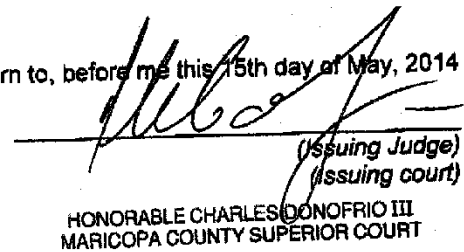 rn to, before me this 15th day of May, 2014
(Issuing Judge)
(Issuing court)
HONORABLE CHARLES DONOFRIO III
MARICOPA COUNTY SUPERIOR COURT